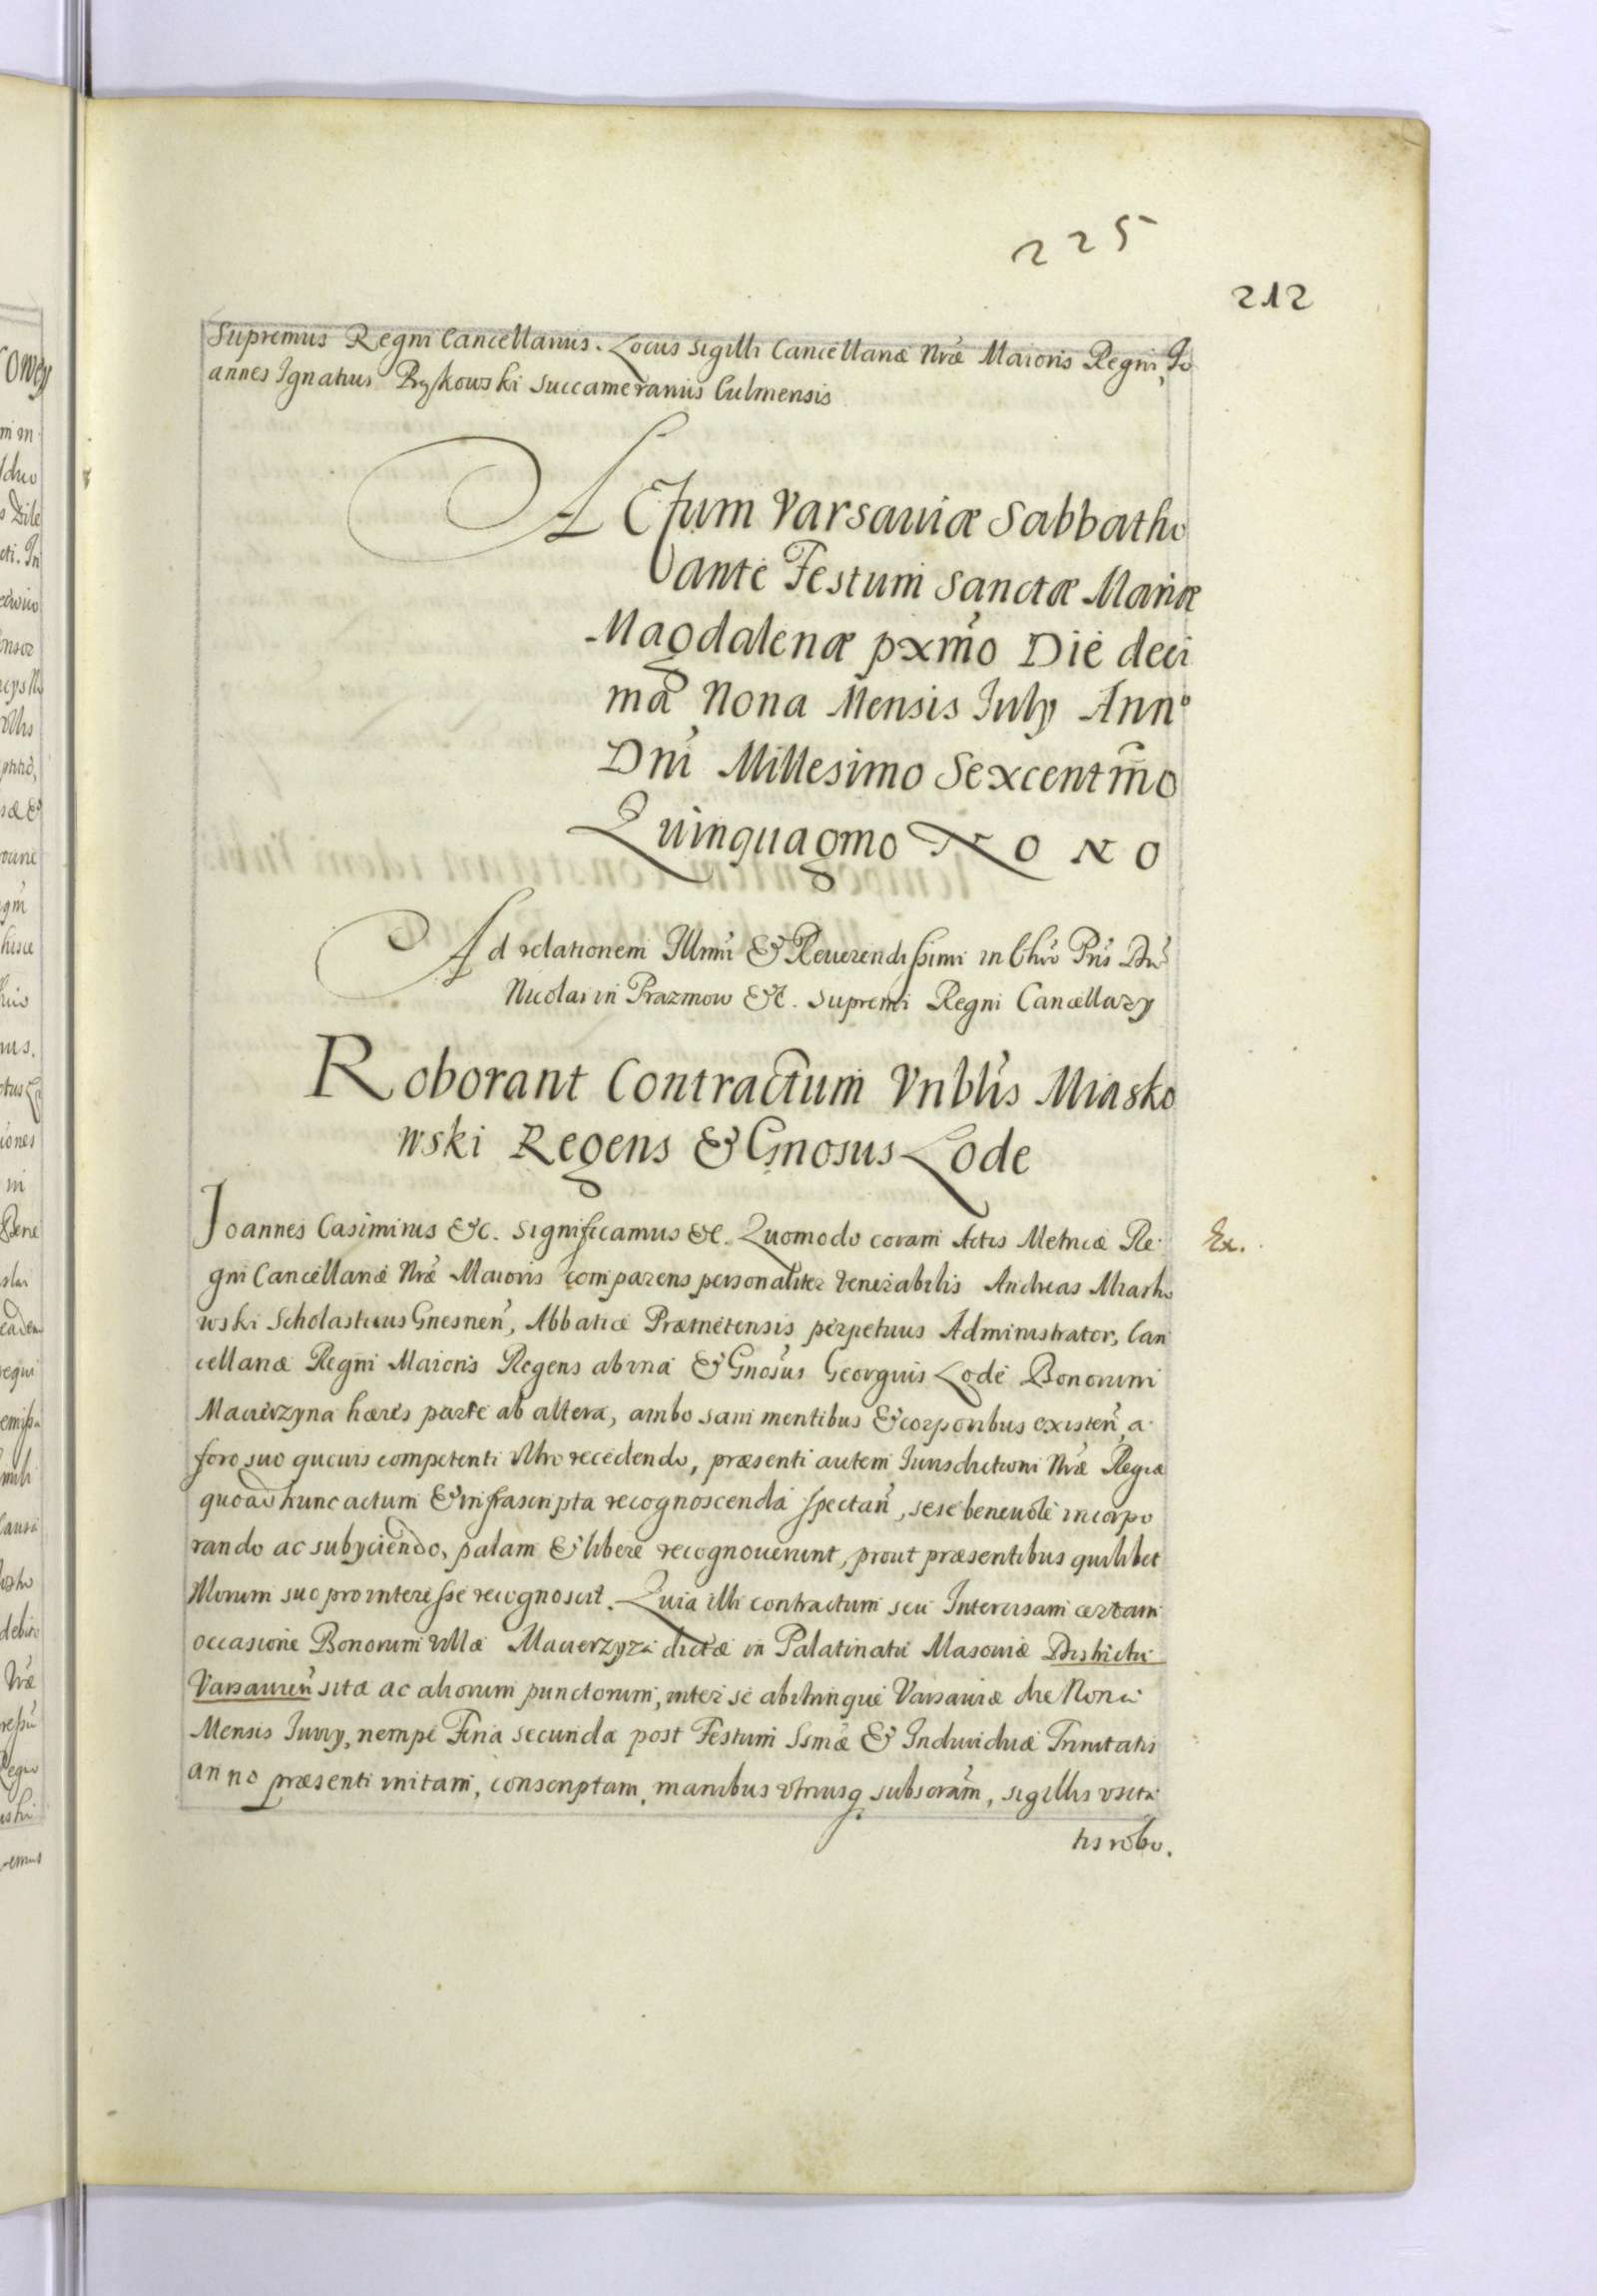 225
212
Supremus Regni Cancellarius. Locus Sigilli Cancellariæ Nræ Maioris Regni, Jo
annes Ignatius Bąkowski Succamerarius Culmensis
ACtum Varsaviæ Sabbatho
ante Festum Sanctæ Mariæ
Magdalenæ pxmo Die deci
ma Nona Mensis July Anno
Dni Millesimo Sexcentmo
Quinquagmo NONO
Ad relationem Illmi & Reuerendissimi in Chro Pris Dni
Nicolai in Prazmow &c. Supremi Regni Cancellary
Roborant Contractum Vnblis Miasko
wski Regens & Gnosus Lode
Joannes Casimirus &c. Significamus &c. Quomodo coram Actis Metricæ Re
Ex.
gni Cancellariæ Nræ Maioris comparens personaliter Venerabilis Andreas Miasko
wski Scholasticus Gnesnen, Abbatiæ Præmetensis perpetuus Administrator, Can
cellariæ Regni Maioris Regens ab una & Gnosus Georgius Lode Bonorum
Macierzyna hæres parte ab altera, ambo sani mentibus & corporibus existen, a
foro suo quouis competenti Vltro recedendo, præsenti autem Iurisdictioni Nræ Regiæ
quoad hunc actum & infrascripta recognoscenda spectan, sese beneuole incorpo
rando ac subyciendo, palam & libere recognouerunt, prout præsentibus quilibet
Illorum suo pro interesse recognoscit. Quia illi contractum seu Intercisam certam
occasione Bonorum Villæ Macierzyza dictæ in Palatinatu Masouiæ Districtu
Varsauien sitæ ac aliorum punctorum, inter se ab utrinque Varsauiæ die Nona
Mensis Iuny, nempe Feria secunda post Festum Ssmæ & Indiuiduæ Trinitatis
anno præsenti initam, conscriptam, manibus vtriusq subscram, sigillis vsita
tis robo.